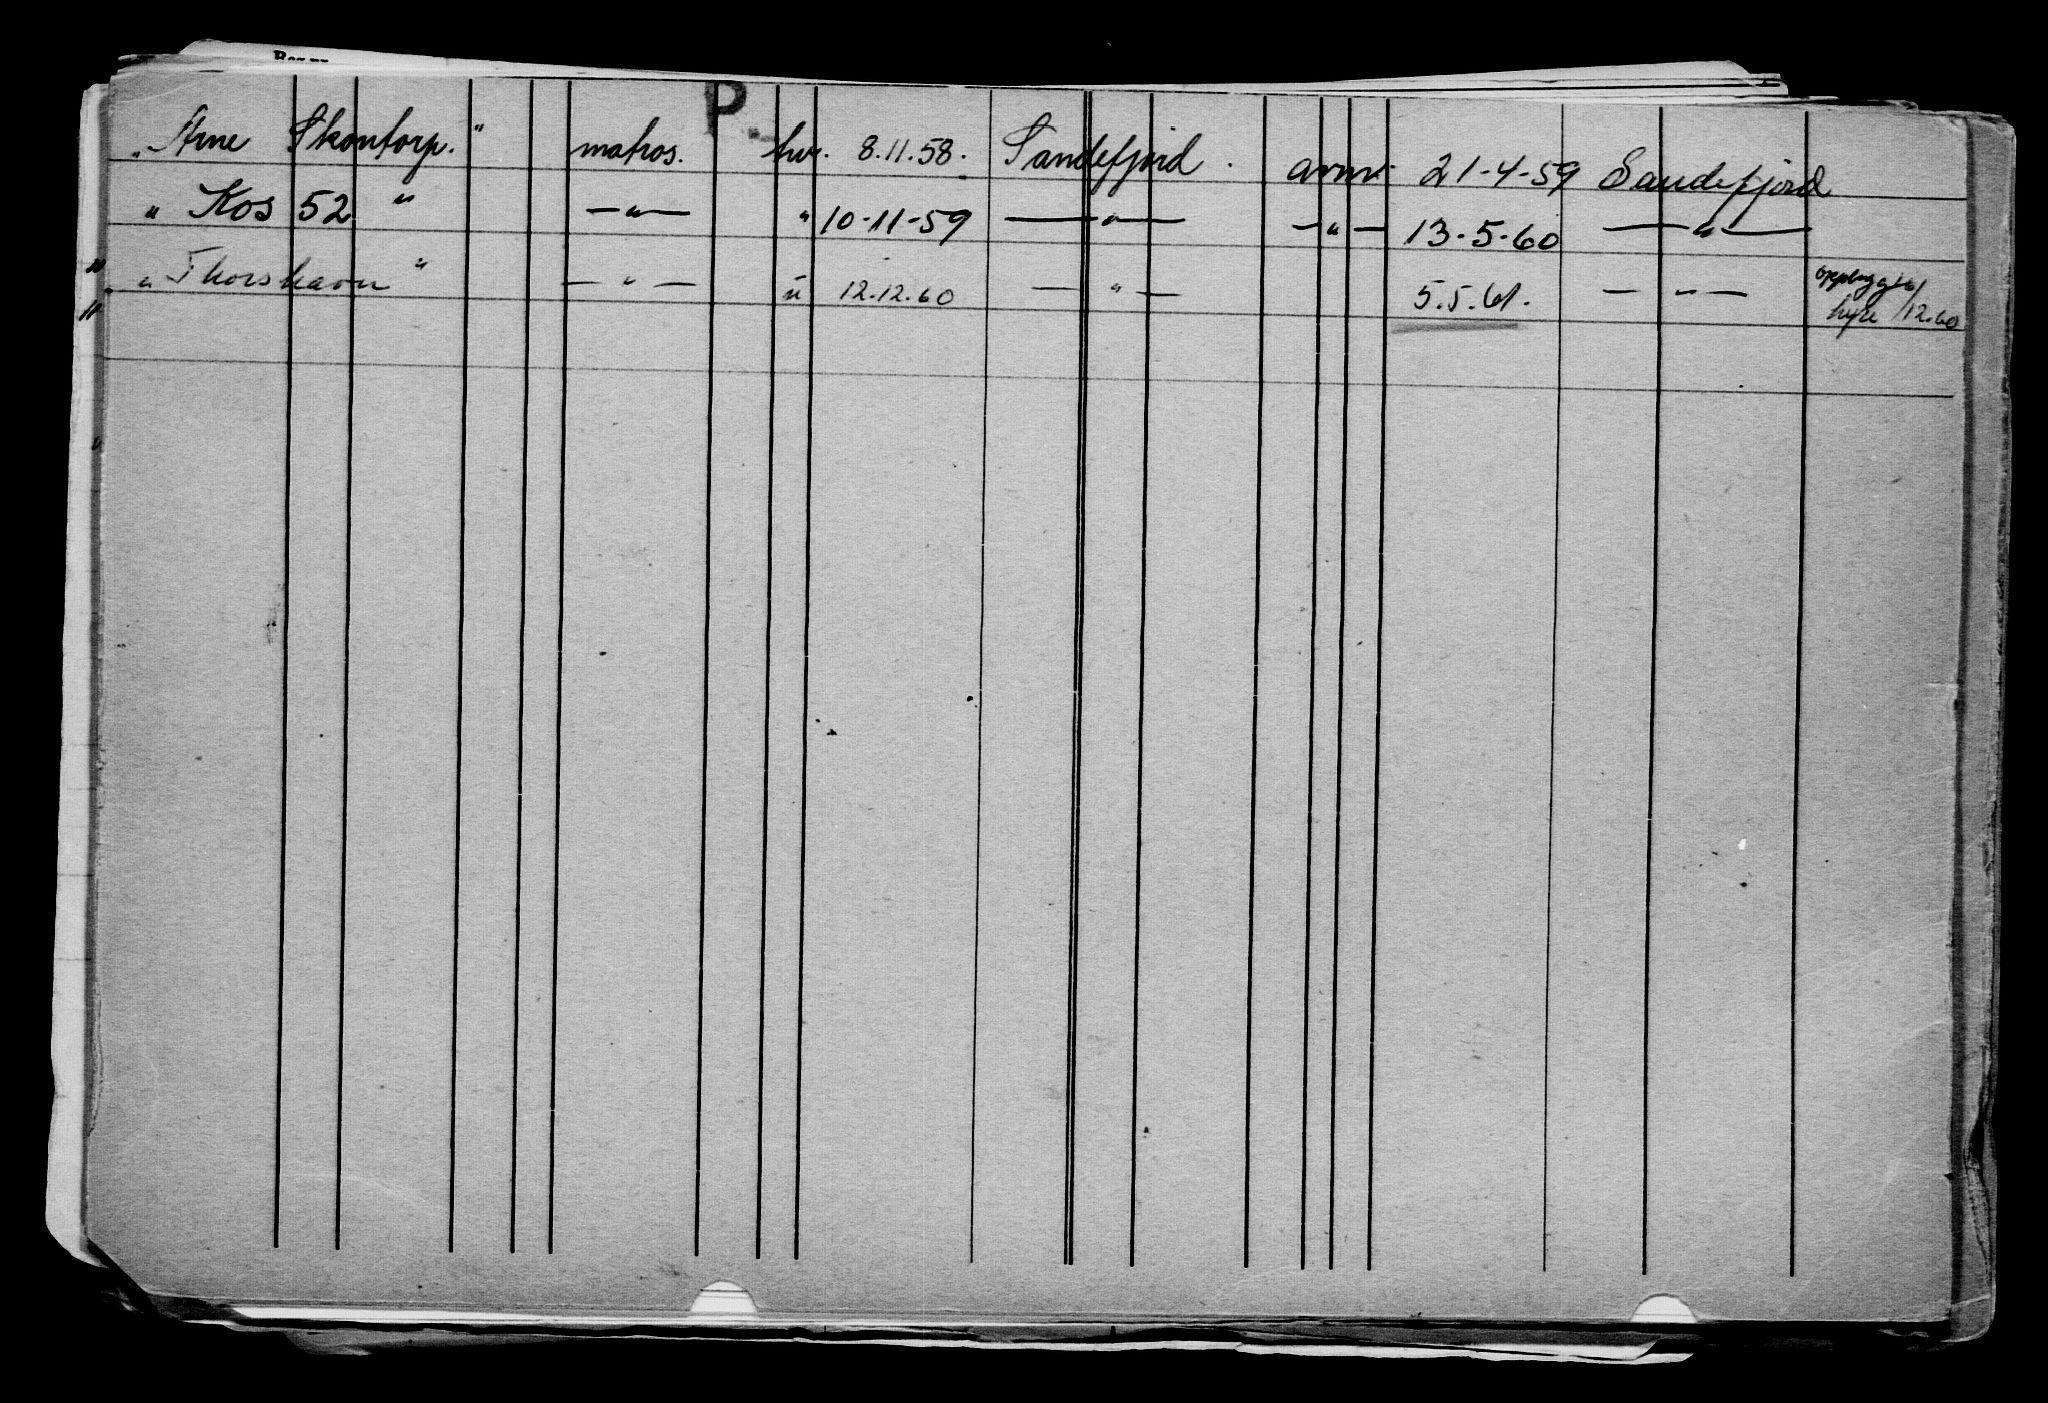 P
„Arne Skontorp." matros. hvr. 8.11.58. Sandefjord. avm. 21-4-59 Sandefjord
„ Kos 52 " — „ — „ 10-11-59 — „ — — „ — 13-5-60 — „ —
„ Thorshavn " — „ — „ 12.12.60 — „ — 5.5.61. — „ — opplagt
hyre /12.60